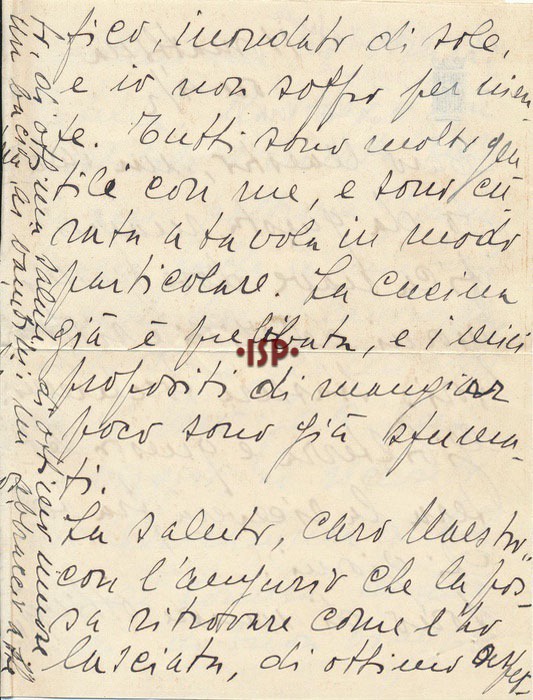 fico, inondato di sole,
e io non soffro per nien-
te. Tutti sono molto gen
tile con me, e sono cu
rata a tavola in modo
particolare. La cucina
già è prelibata, e i miei
propositi di mangiar
poco sono già sfuma-
ti.
La saluto, caro Maestro,
con l'augurio che la pos-
sa ritrovare come l'ho
lasciata, di ottimo aspet-
to, di ottima salute, di ottimo umore
un bacio ai bambini un abbraccio a
·ISP·